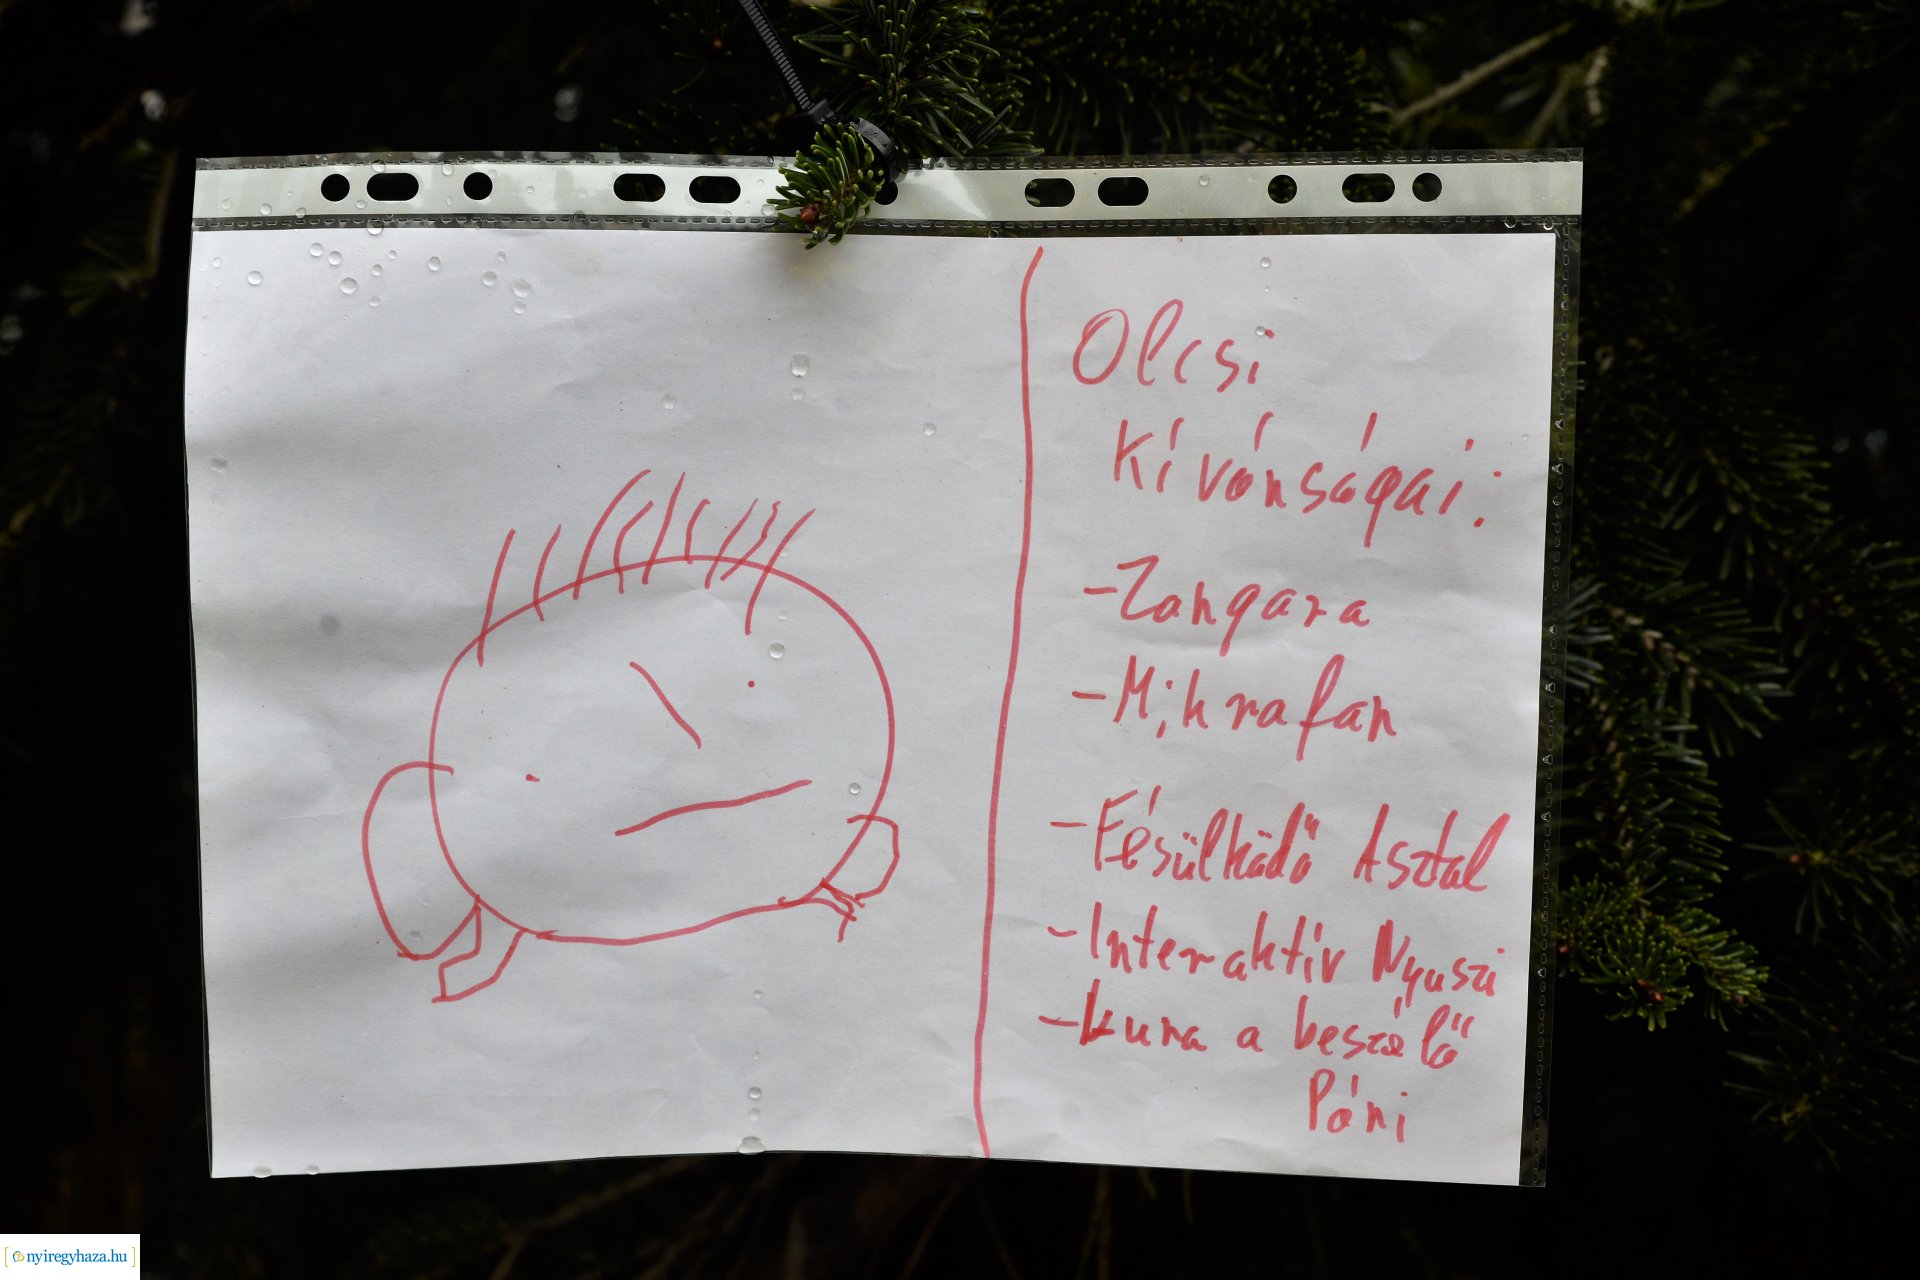 Olcsi
Kívánságai:
- Zongora
- Mikrofon
- Fésülködő Asztal
- Interaktív Nyuszi
- Luna a beszélő
Póni
[nyiregyhaza.hu]